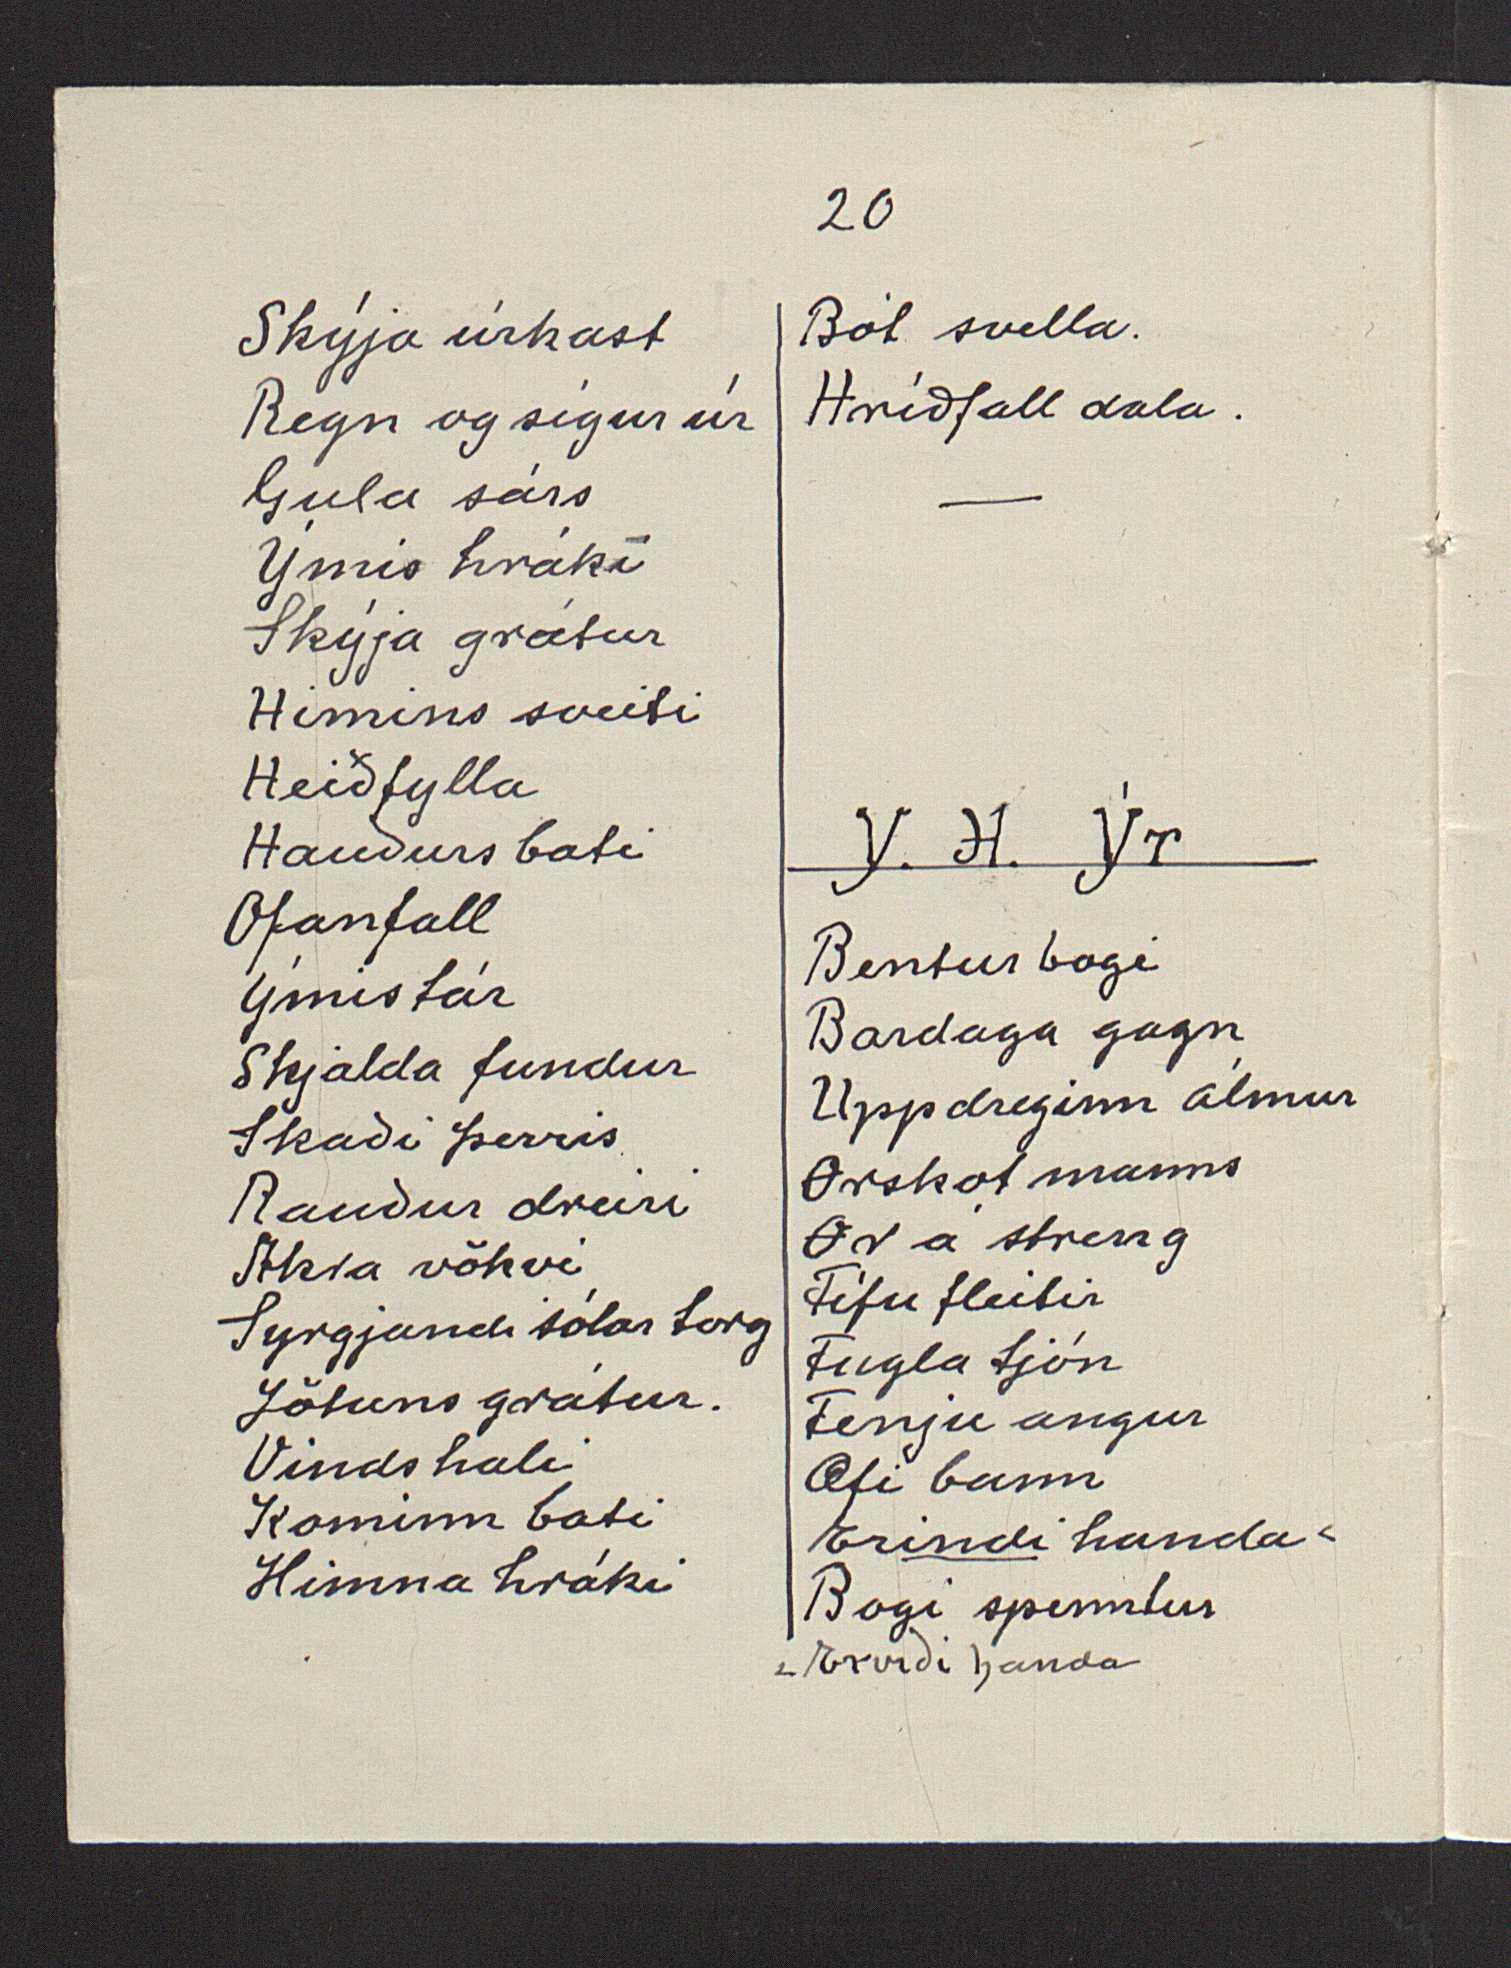 20
Skýja úrkast
Regn og sígur úr
Gula sárs
Ýmis hráki
Skýja grátur
Himins sveiti
Heiðfylla
Hauðurs bati
Ofanfall
Ýmis tár
Skjalda fundur
Skaði þerris
Rauður dreiri
Akra vökvi
Syrgjandi sólar torg
Jötuns grátur.
Vinds hali
Kominn bati
Himna hráki
Bót svella.
Hríðfall dala.
Y. H. Ýr
Bentur bogi
Bardaga gagn
Uppdreginn álmur
Orskot manns
Or á streng
Fífu fleitir
Fugla tjón
Fenju angur
Ofi bann
Erindi handa
Bogi spenntur
Erviði handa